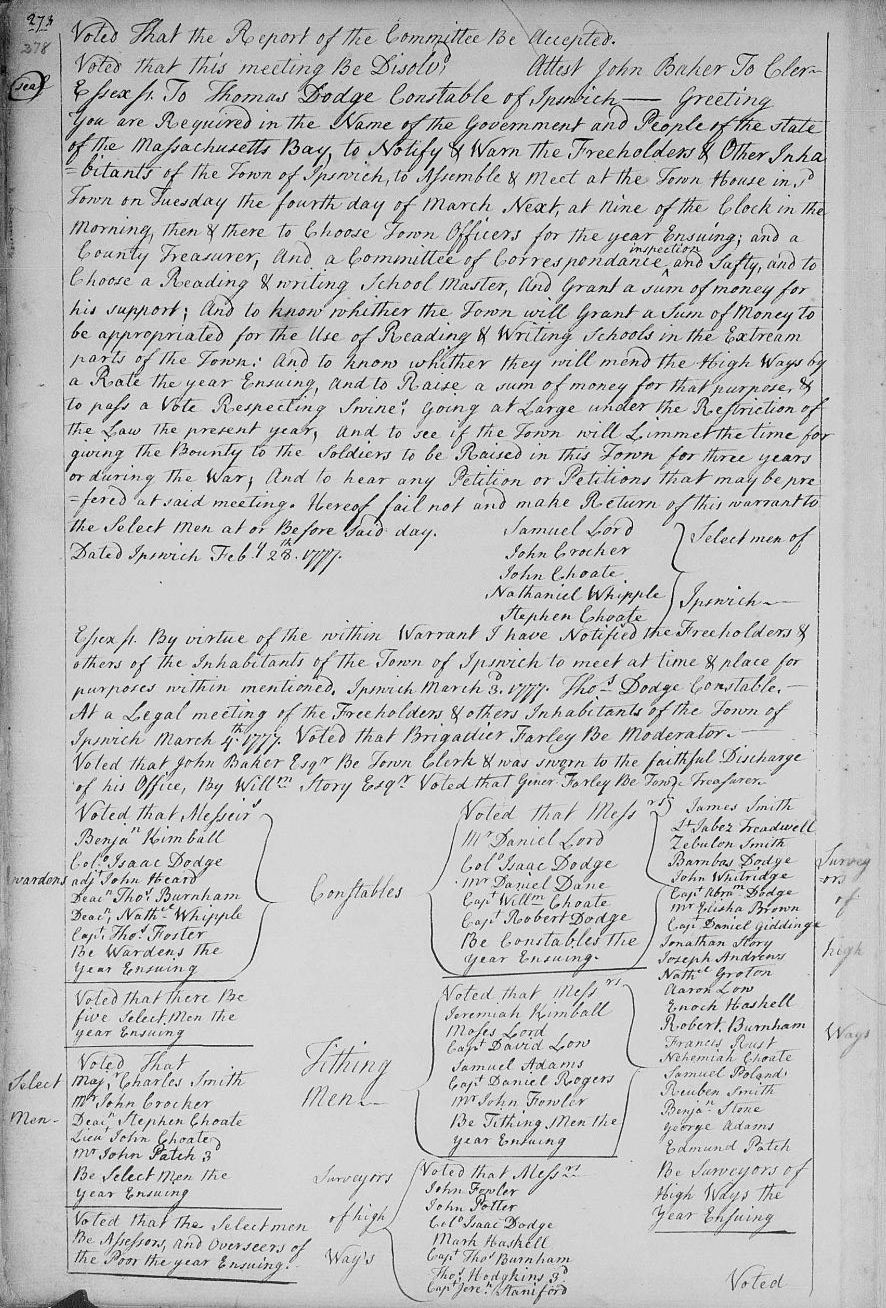 273
278
Voted That the Report of the Committee Be Accepted.
Voted that this meeting Be Disolvd Attest John Baker To Cler
seal
Essex ss. To Thomas Dodge Constable of Ipswich — Greeting
You are Required in the Name of the Government and People of the State
of the Massachusetts Bay, to Notify & Warn the Freeholders & Other Inha
=bitants of the Town of Ipswich, to Assemble & Meet at the Town House in sd
Town on Tuesday the fourth day of March Next, at nine of the Clock in the
Morning, then & there to Choose Town Officers for the year Ensuing; and a
County Treasurer, And a Committee of Correspondance ^inspection and Safty, and to
Choose a Reading & writing School Master, And Grant a sum of money for
his support; And to know whither the Town will Grant a Sum of Money to
be appropriated for the Use of Reading & Writing Schools in the Extream
parts of the Town: And to know whither they will mend the High Ways by
a Rate the year Ensuing, and to Raise a sum of money for that purpose, &
to pass a Vote Respecting Swines going at Large under the Restriction of
the Law the present year, and to see if the Town will Limmet the time for
giving the Bounty to the Soldiers to be Raised in this Town for three years
or during the War; And to hear any Petition or Petitions that may be pre
=fered at said meeting. Hereof fail not and make Return of this warrant to
the Select Men at or Before said day.
Dated Ipswich Feby 28th. 1777.
Samuel Lord
John Crocker
John Choate
Nathaniel Whipple
Stephen Choate
Selectmen of
Ipswich
Essex ss. By virtue of the within Warrant I have Notified the Freeholders &
others of the Inhabitants of the Town of Ipswich to meet at time & place for
purposes within mentioned. Ipswich March 3d. 1777. Thos Dodge Constable.
At a Legal meeting of the Freeholders & others Inhabitants of the Town of
Ipswich March 4th. 1777. Voted that Brigadier Farley Be Moderator.
Voted that John Baker Esqr Be Town Clerk & was sworn to the faithful Discharge
of his Office, By Willm Story Esqr Voted that Gener Farley Be Town Treasurer
wardens
Voted that Messeirs
Benjan Kimball
Colo Isaac Dodge
adjt John Heard
Deacn Thos Burnham
Deacn, Nathel Whipple
Capt. Thos Foster
Be Wardens the
year Ensuing
Voted that there Be
five Select Men the
year Ensuing
Select
Men
Voted That
Majr Charles Smith
Mr John Crocker
Deacn Stephen Choate
Lieut John Choate
Mr John Patch 3d
Be Select Men the
year Ensuing
Voted that the Selectmen
Be Assessors, and Overseers of
the Poor the year Ensuing.
Constables
Voted that Messrs
Mr Daniel Lord
Colo Isaac Dodge
Mr Daniel Dane
Capt Willm Choate
Capt Robert Dodge
Be Constables the
year Ensuing.
Tithing
Men
Voted that Messrs
Jeremiah Kimball
Moses Lord
Capt David Low
Samuel Adams
Capt Daniel Rogers
Mr John Fowler
Be Tithing Men the
year Ensuing
Surveyors
of high
Way's
Voted that Messrs
John Fowler
John Potter
Colo Isaac Dodge
Mark Haskell
Capt Thos Burnham
Thos Hodgkins 3d
Capt Jeren Staniford
James Smith
Lt Jabez Treadwell
Zebulon Smith
Barnbas Dodge
John Whitridge
Capt Abram Dodge
Mr Elisha Brown
Capt Daniel Giddinge
Jonathan Story
Joseph Andrews
Nathel Groton
Aaron Low
Enoch Haskell
Robert Burnham
Francis Rust
Nehemiah Choate
Samuel Poland
Reuben Smith
Benjan Stone
George Adams
Edmund Patch
Be Surveyors of
High Ways the
Year Ensuing
Survey
ors
of
high
Ways
Voted